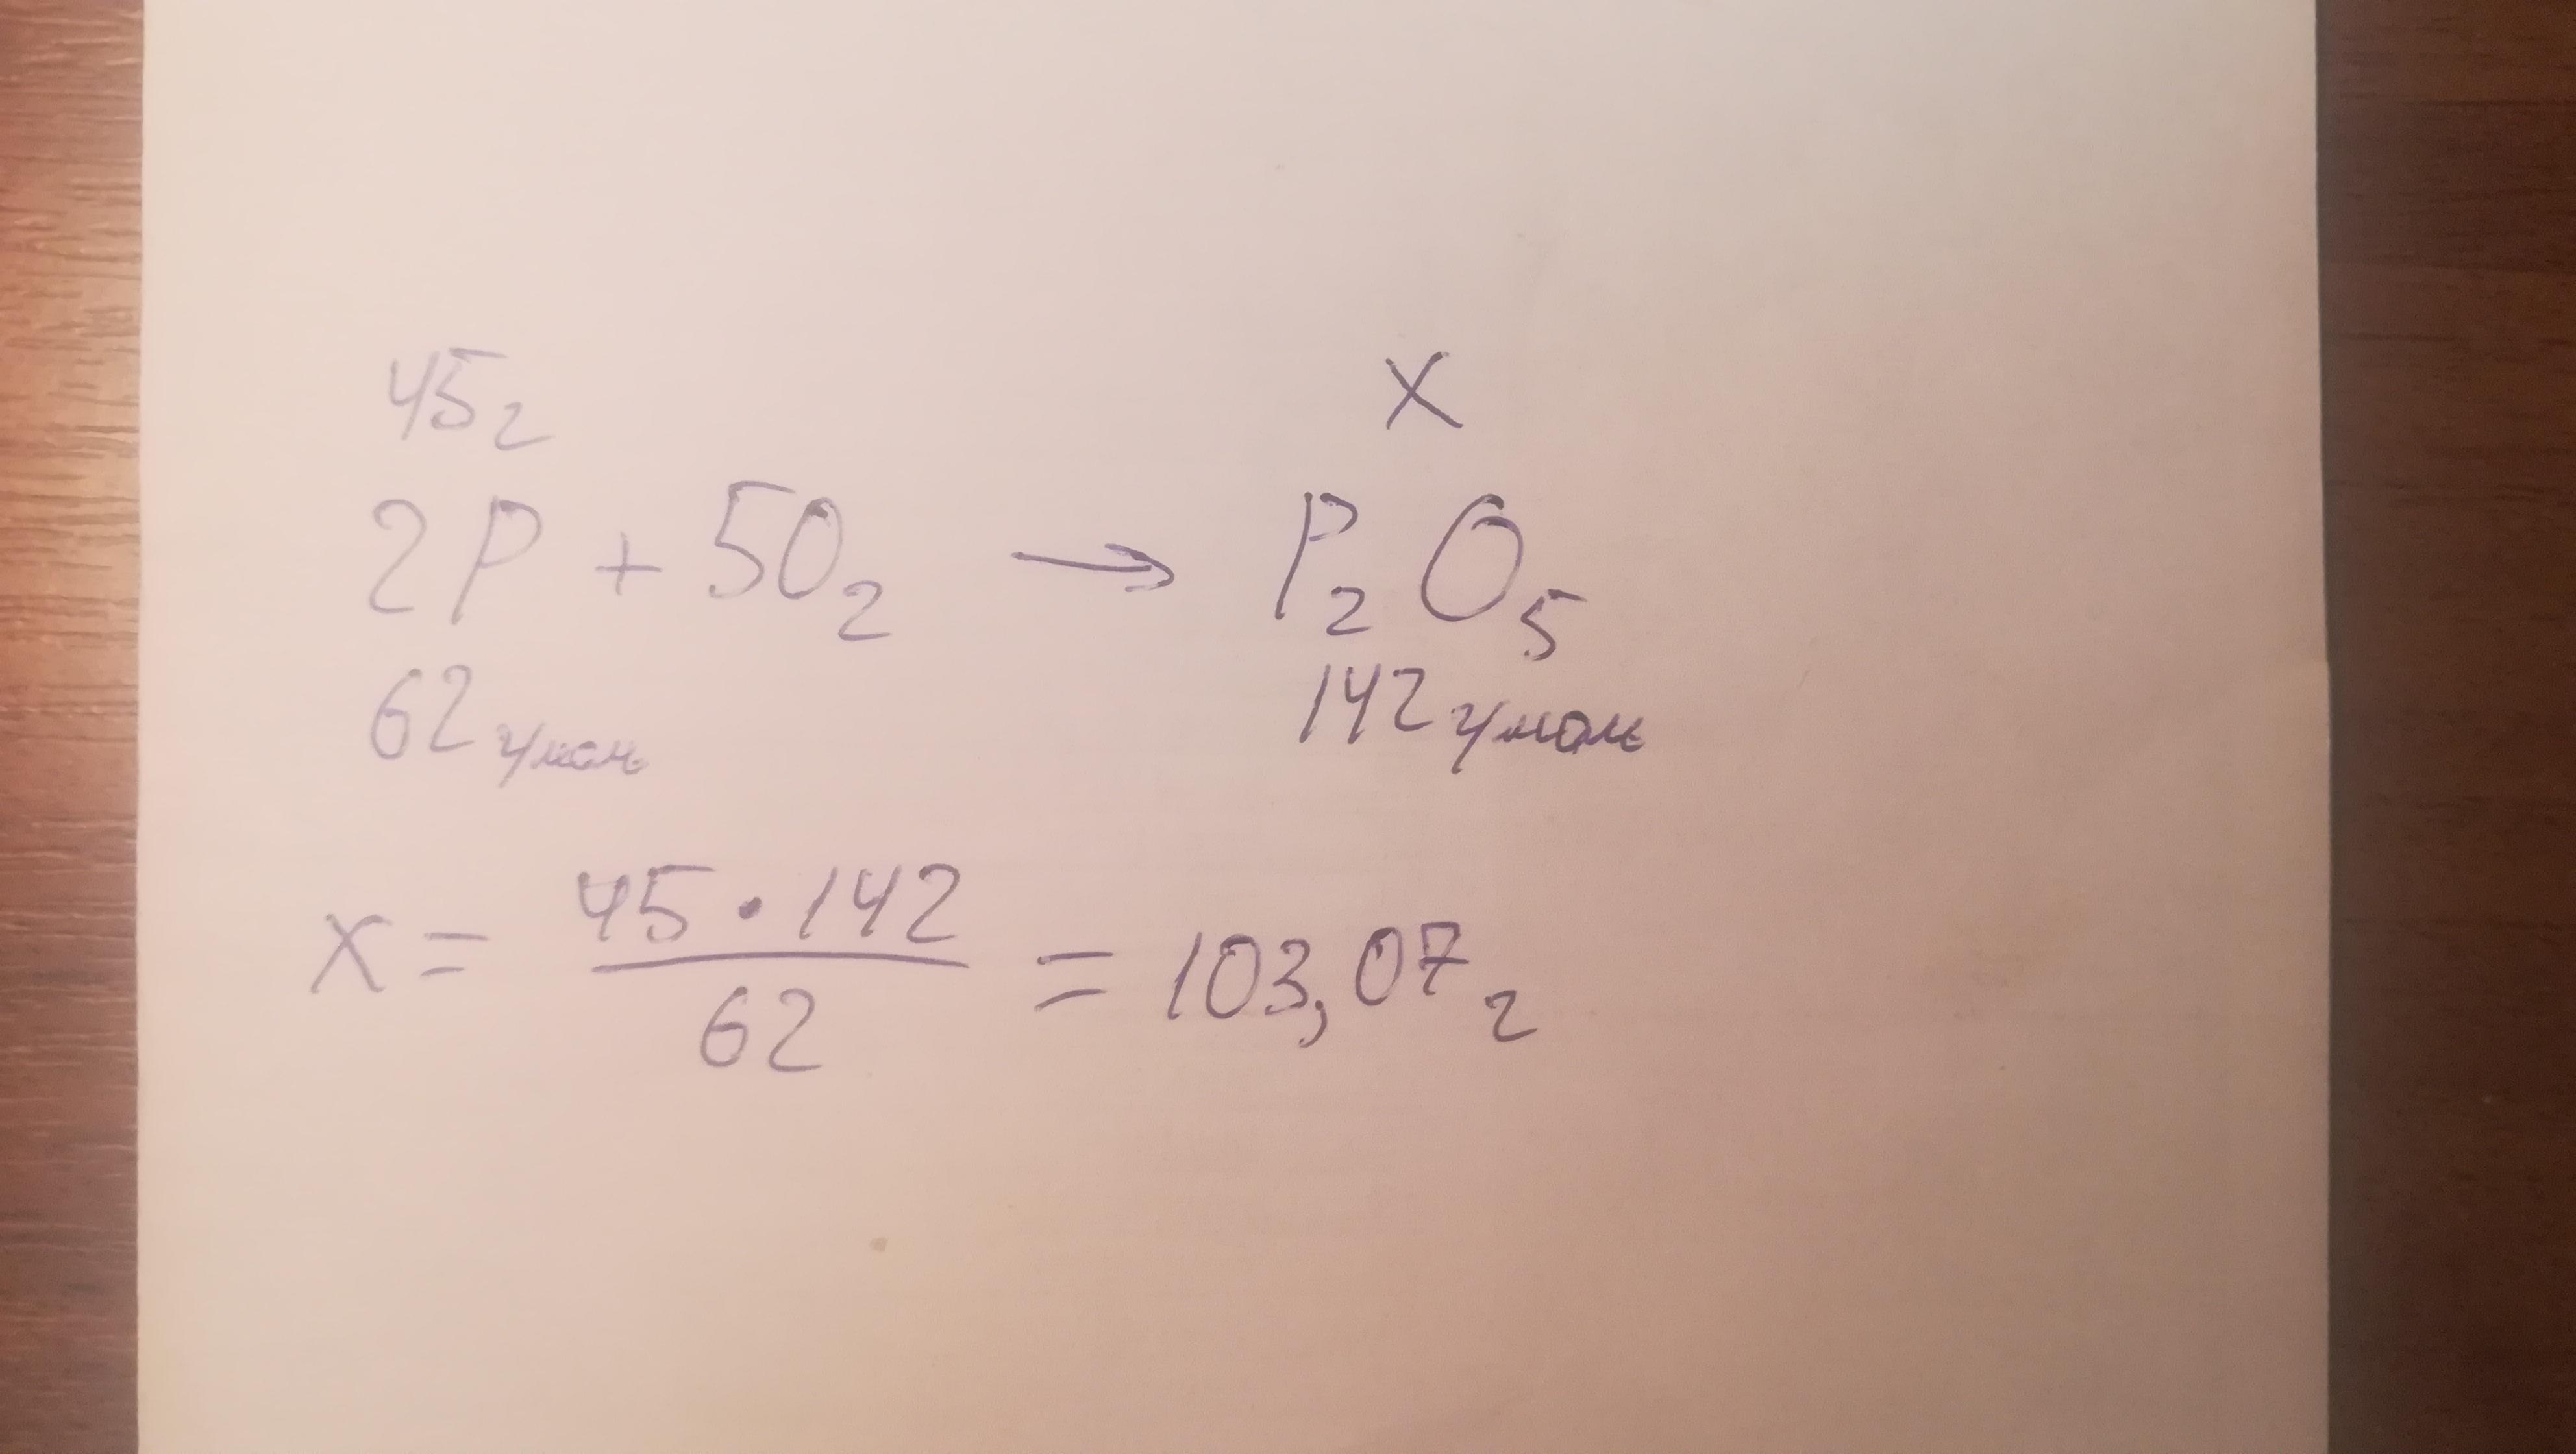 45г x
2P + 5O₂ → P₂O₅
62 г/моль 142 г/моль
x = 45 · 142 / 62 = 103,07 г